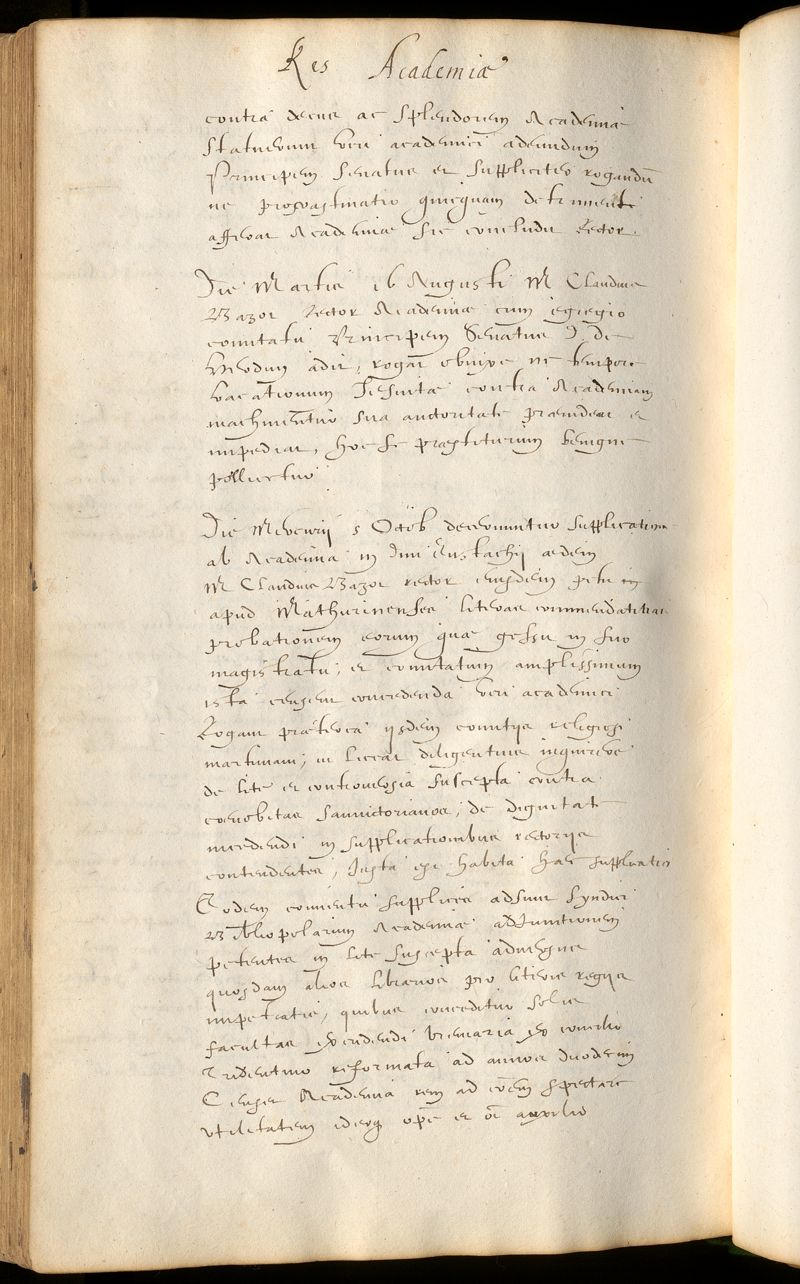 Res Academiæ
contra decus ac splendorem Academiæ
statuerunt viri academici adeundum
Principem Senatus et suppliciter rogandū
ne procrastinatio quicquam detrimenti
afferat Academiæ sic concludit Rector.
Die Martis 16 Augusti M Claudius
Bazot rector Academiæ cum egregio
comitatu Principem Senatus D. de
Verdun adit, rogat obnixe ne tempore
vacationum Jesuitæ contra Academiam
machinentur sua auctoritate provideat et
impediat, hoc se præstiturum benigne
pollicetur
Die Mercurij 5 Octob decernuntur supplicationes
ab Academia in divi Eustachij ædem
M Claudius Bazot rector eiusdem petit in
apud Mathurinenses literas commendatitias
probationem eorum quæ gessit in suo
magistratu, et comitatum amplissimum
ista censent concedenda viri academici
Rogant præterea ijsdem comitijs religiosi
martiniani, ut liceat diligentius inquirere
de lite et controversia suscepta contra
cœnobitas sanvictorianos, de dignitate
incedendi in supplicationibus rectorijs
contendentes, Justa est habita hæc supplicatio
Eodem conventu supplices adsunt Syndici
Bibliopolarum Academiæ adiunctionem
petentes in lite suscepta adversus
quosdam alios librarios pro literis regijs
impetratis, quibus conceditur solis
facultas excudendi breviaria ex concilio
Tridentino reformata ad annos duodecim
Censet Academia rem ad eorū spectare
utilitatem ideoq opē et oī auxilio